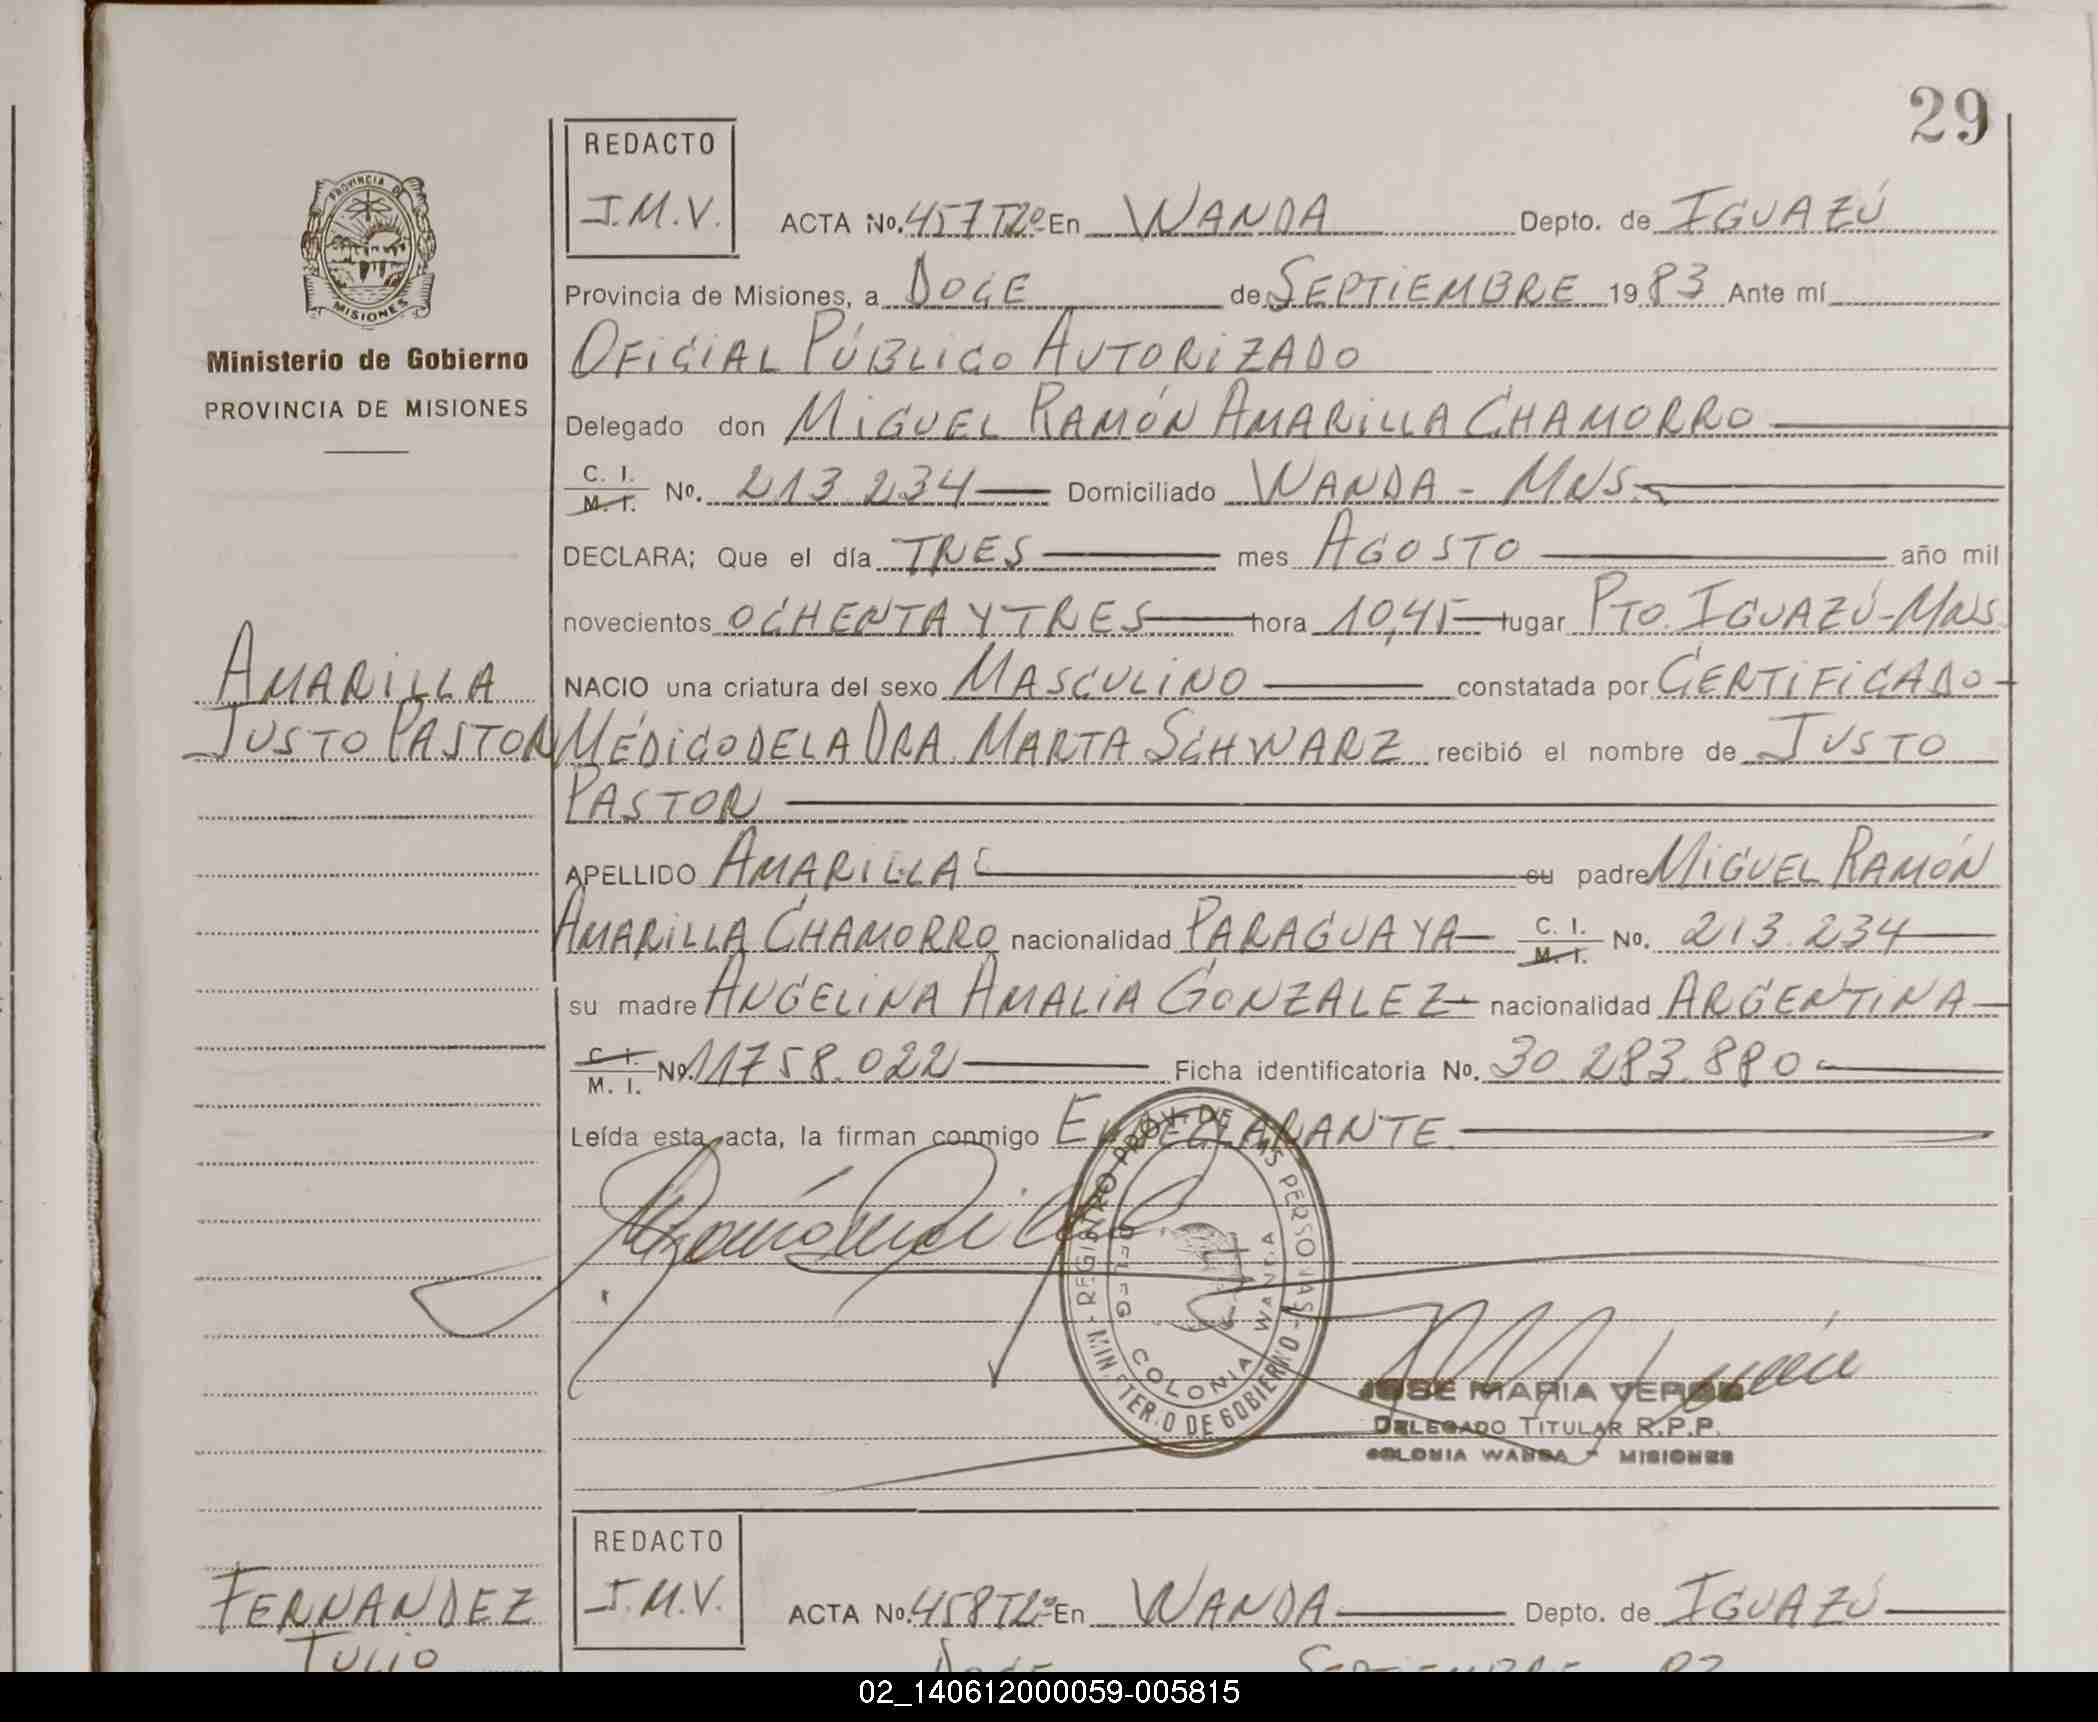 29
REDACTO
J.M.V.
PROVINCIA DE
MISIONES
Ministerio de Gobierno
PROVINCIA DE MISIONES
ACTA No. 457 T2º En WANDA Depto. de IGUAZÚ
Provincia de Misiones, a DOCE de SEPTIEMBRE 19 83 Ante mí
OFICIAL PÚBLICO AUTORIZADO
Delegado don MIGUEL RAMÓN AMARILLA CHAMORRO
C. I. M. I. No. 213.234 Domiciliado WANDA - MNS.
DECLARA; Que el día TRES mes AGOSTO año mil
novecientos OCHENTA Y TRES hora 10,45 lugar PTO. IGUAZÚ-MNS
AMARILLA
NACIO una criatura del sexo MASCULINO constatada por CERTIFICADO
JUSTO PASTOR
MÉDICO DE LA DRA. MARTA SCHWARZ recibió el nombre de JUSTO
PASTOR
APELLIDO AMARILLA su padre MIGUEL RAMÓN
AMARILLA CHAMORRO nacionalidad PARAGUAYA C. I. M. I. No. 213.234
su madre ANGELINA AMALIA GONZALEZ nacionalidad ARGENTINA
C. I. M. I. No. 11758.022 Ficha identificatoria No. 30.283.880
Leída esta acta, la firman conmigo EL DECLARANTE
REGISTRO PROV. DE LAS PERSONAS
MINISTERIO DE GOBIERNO
COLONIA WANDA
JOSE MARIA VERON
DELEGADO TITULAR R.P.P.
COLONIA WANDA - MISIONES
REDACTO
J.M.V.
FERNANDEZ
JULIO
ACTA No. 458 T2º En WANDA Depto. de IGUAZÚ
DOCE SEPTIEMBRE 83
02_140612000059-005815